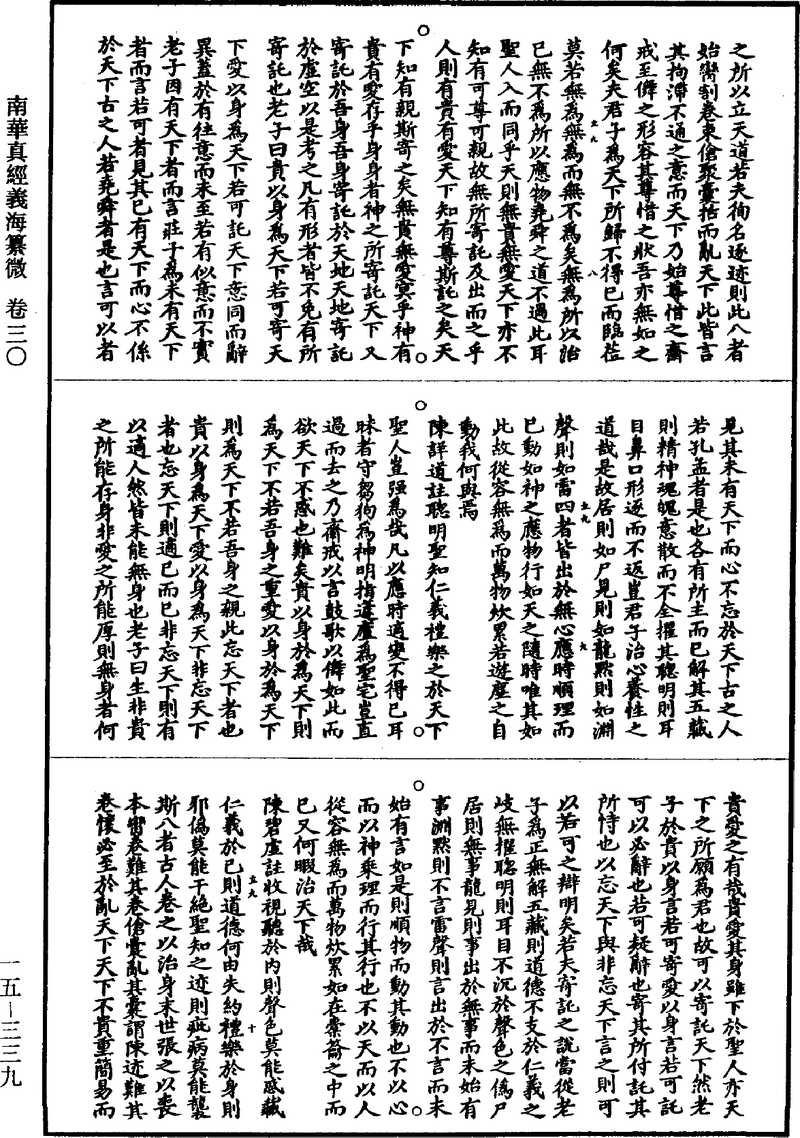 之所以立天道若夫徇名逐迹則此八者
始臠割卷束傖聚囊括而亂天下此皆言
其拘滯不通之意而天下乃始尊惜之齋
戒至儛之形容其尊惜之狀吾亦無如之
何矣夫君子為天下所歸不得已而臨莅
莫若無為無為而無不為矣無為所以治
已無不為所以應物堯舜之道不過此耳
聖人入而同乎天則無貴無愛天下亦不
知有可尊可親故無所寄託及出而之乎
人則有貴有愛天下知有尊斯託之矣天
下知有親斯寄之矣無貴無愛冥乎神有
貴有愛存乎身身者神之所寄託天下又
寄託於吾身吾身寄託於天地天地寄託
於虛空以是考之凡有形者皆不免有所
寄託也老子曰貴以身為天下若可寄天
下愛以身為天下若可託天下意同而辭
異蓋於有往意而未至若有似意而不實
老子因有天下者而言莊子為未有天下
者而言若可者見其已有天下而心不係
於天下古之人若堯舜者是也言可以者
見其未有天下而心不忘於天下古之人
若孔孟者是也各有所主而已解其五藏
則精神魂魄意散而不全擢其聰明則耳
目鼻口形逐而不返豈君子治心養性之
道哉是故居則如尸見則如龍默則如淵
聲則如雷四者皆出於無心應時順理而
已動如神之應物行如天之隨時唯其如
此故從容無為而萬物炊累若遊塵之自
動我何與焉
陳詳道註聰明聖知仁義禮樂之於天下
聖人豈強為哉凡以應時適變不得已耳
昧者守芻狗為神明指蘧廬為聖宅豈直
過而去之乃齋戒以言鼓歌以儛如此而
欲天下不惑也難矣貴以身於為天下則
為天下不若吾身之重愛以身於為天下
則為天下不若吾身之親此忘天下者也
貴以身為天下愛以身為天下非忘天下
者也忘天下則適已而已非忘天下則有
以適人然皆未能無身也老子曰生非貴
之所能存身非愛之所能厚則無身者何
貴愛之有哉貴愛其身雖下於聖人亦天
下之所願為君也故可以寄託天下然老
子於貴以身言若可寄愛以身言若可託
可以必辭也若可疑辭也寄其所付託其
所恃也以忘天下與非忘天下言之則可
以若可之辯明矣若夫寄託之說當從老
子為正無解五藏則道德不支於仁義之
岐無擢聰明則耳目不沉於聲色之偽尸
居則無事龍見則事出於無事而未始有
事淵默則不言雷聲則言出於不言而未
始有言如是則順物而動其動也不以心
而以神乘理而行其行也不以天而以人
從容無為而萬物炊累如在橐籥之中而
已又何暇治天下哉
陳碧虛註收視聽於內則聲色莫能惑藏
仁義於已則道德何由失約禮樂於身則
邪偽莫能干絕聖知之迹則疵病莫能襲
斯八者古人卷之以治身末世張之以喪
本臠卷難其卷傖囊亂其囊謂陳迹難其
卷懷必至於亂天下天下不貴重簡易而
南華真經義海纂微 卷三〇
一五—三三九